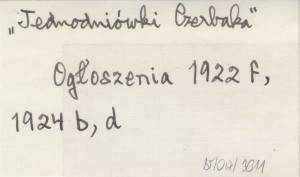 „Jednodniówki Czerbaka"
Ogłoszenia 1922 f,
1924 b, d